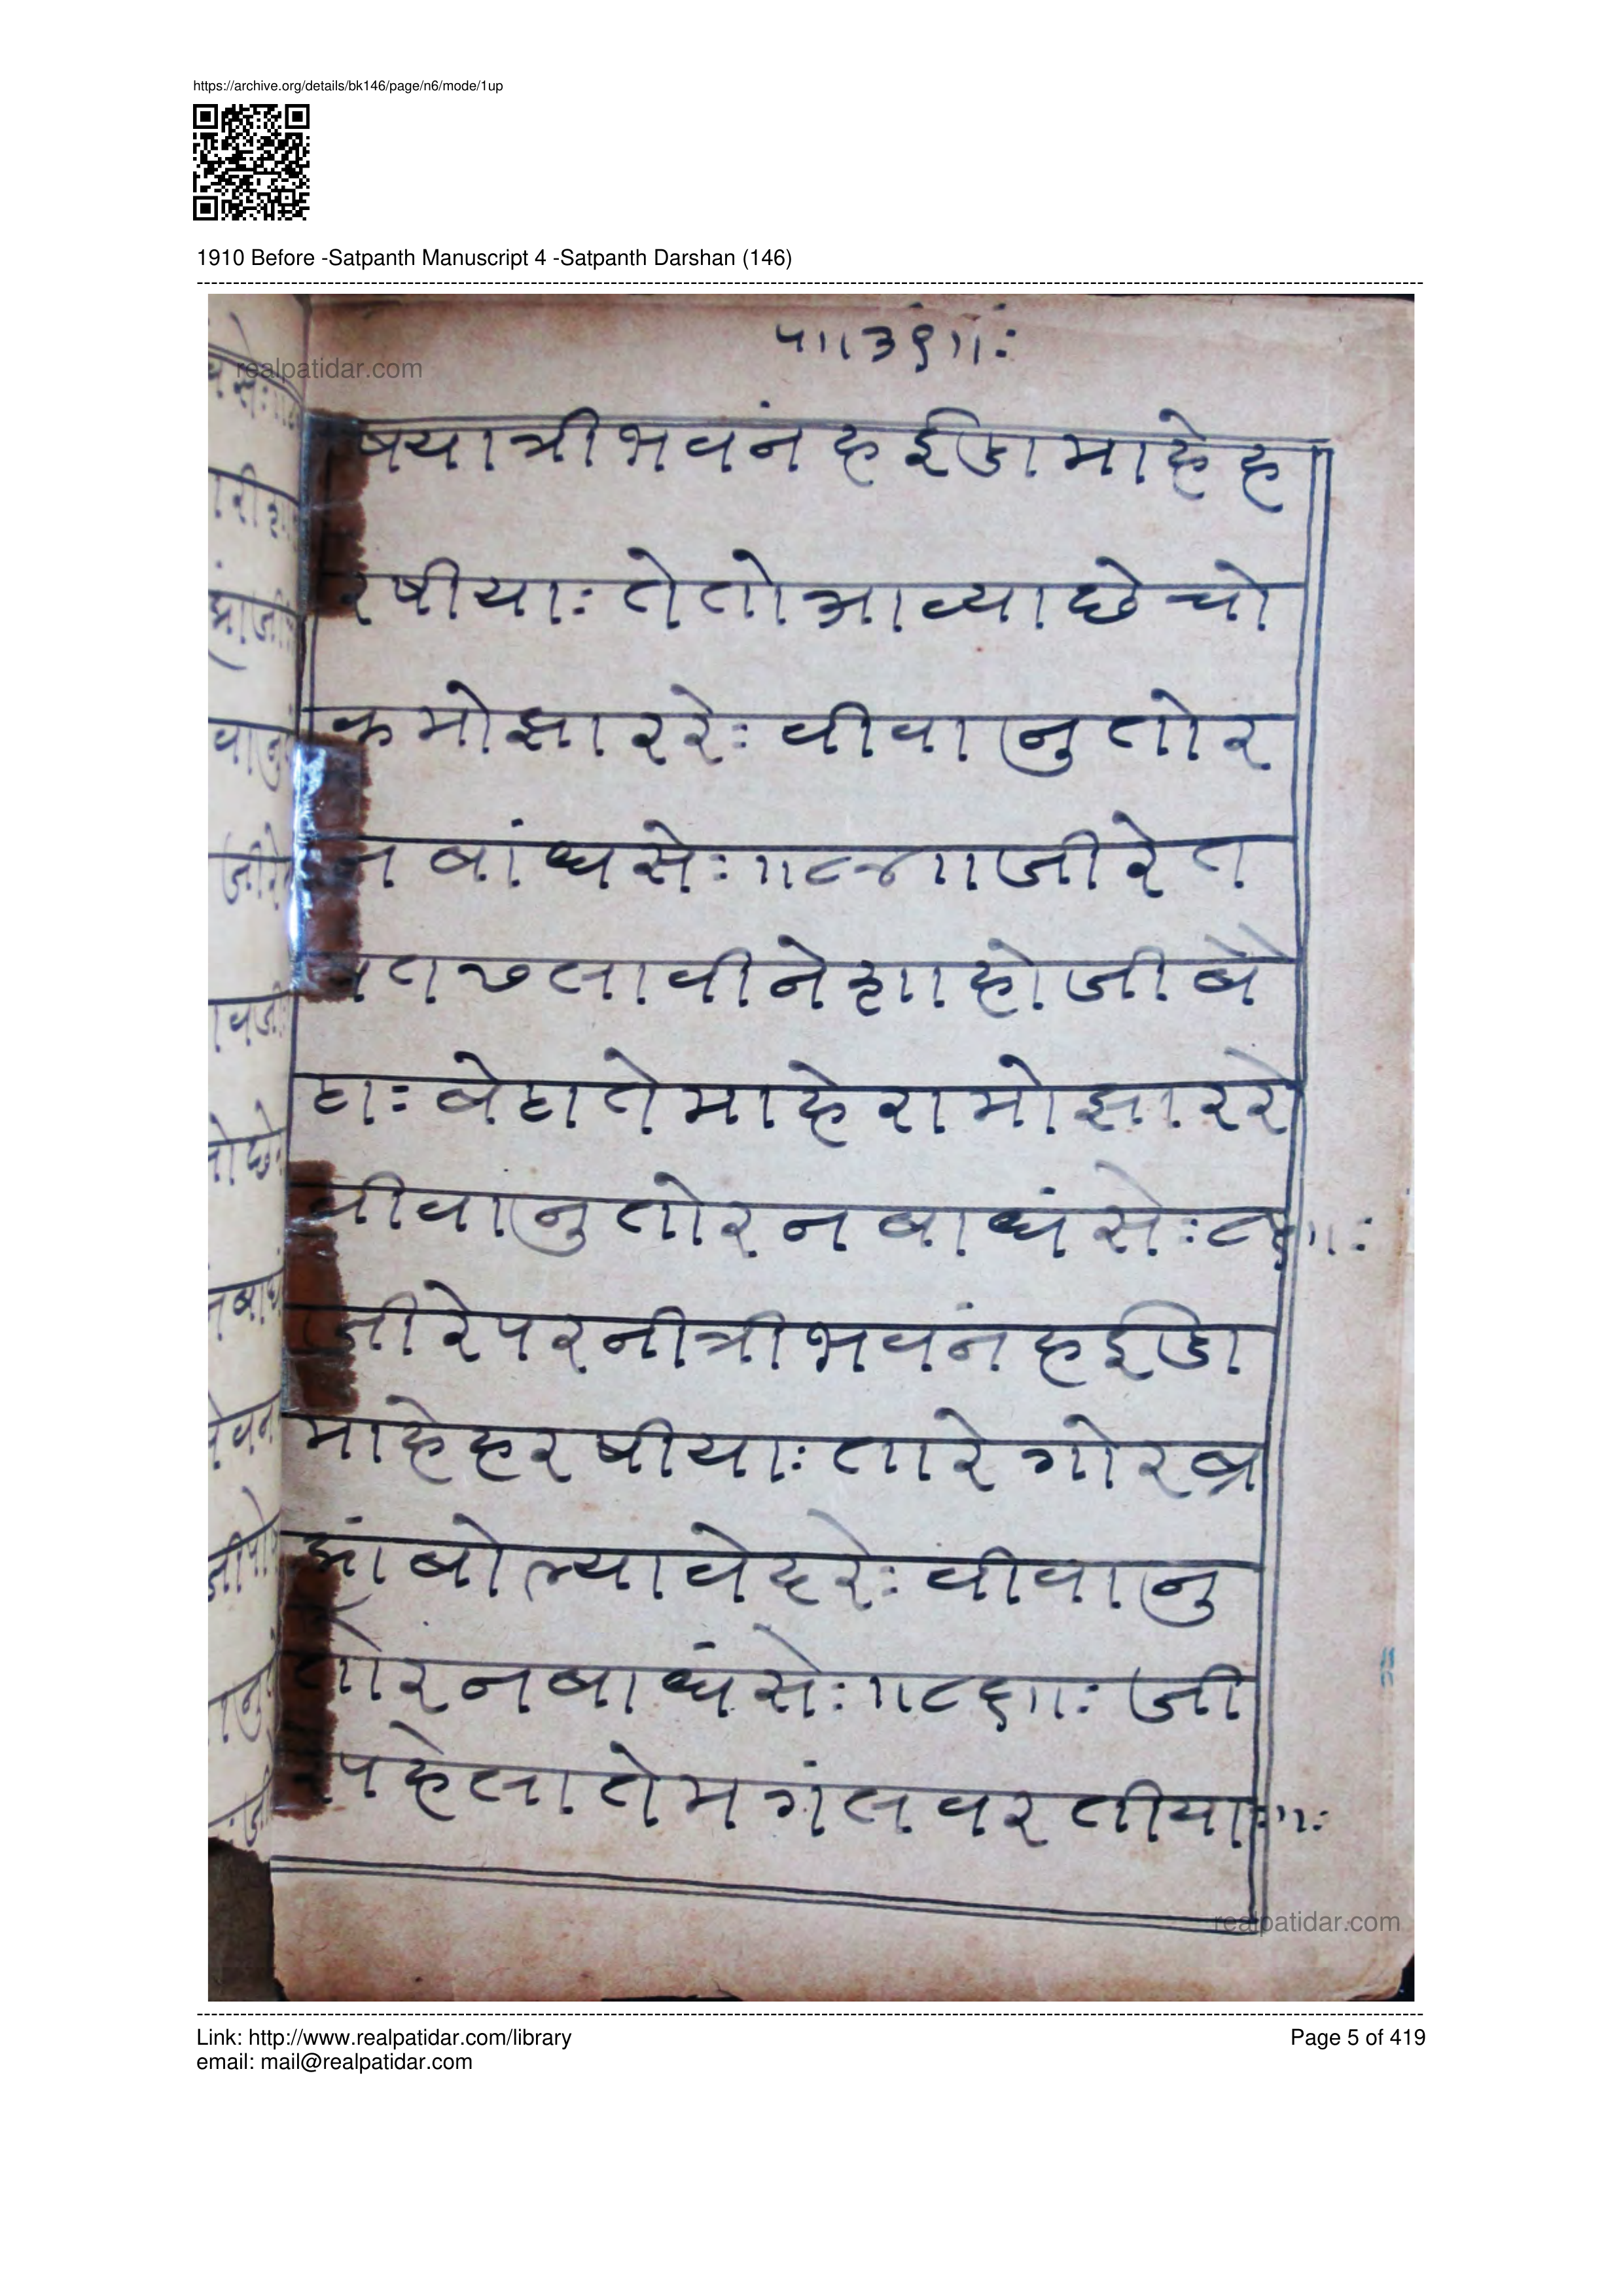 https://archive.org/details/bk146/page/n6/mode/1up
1910 Before -Satpanth Manuscript 4 -Satpanth Darshan (146)
realpatidar.com
प॥३९॥:
षयात्रीभवंनहईडामाहेह
रषीयाः तेतोआव्याछेचो
कमोझाररेः वीवानुतोर
न बांधसेः॥८४॥जीरेत
लावीनेशाहोजीबे
ठाः बेठातेमाहेरामोझाररे
वीवानुतोरनबाधंसेः
जीरेपरनीत्रीभवंनहईडा
माहेहरषीयाः तारेगोरब्र
ह्मांबोल्यावेदरेः वीवानु
तोरनबाधंसेः॥८६॥: जी
पहेलातेमगंलवरतीया॥:
realpatidar.com
Link: http://www.realpatidar.com/library
email: mail@realpatidar.com
Page 5 of 419